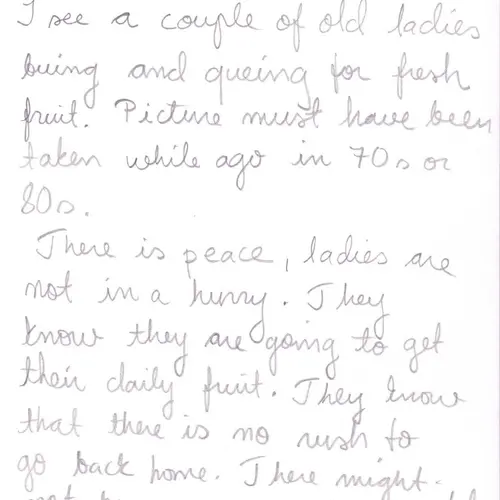 I see a couple of old ladies
buing and queing for fresh
fruit. Picture must have been
taken while ago in 70s or
80s.
There is peace, ladies are
not in a hurry. They
know they are going to get
their daily fruit. They know
that there is no rush to
go back home. There might